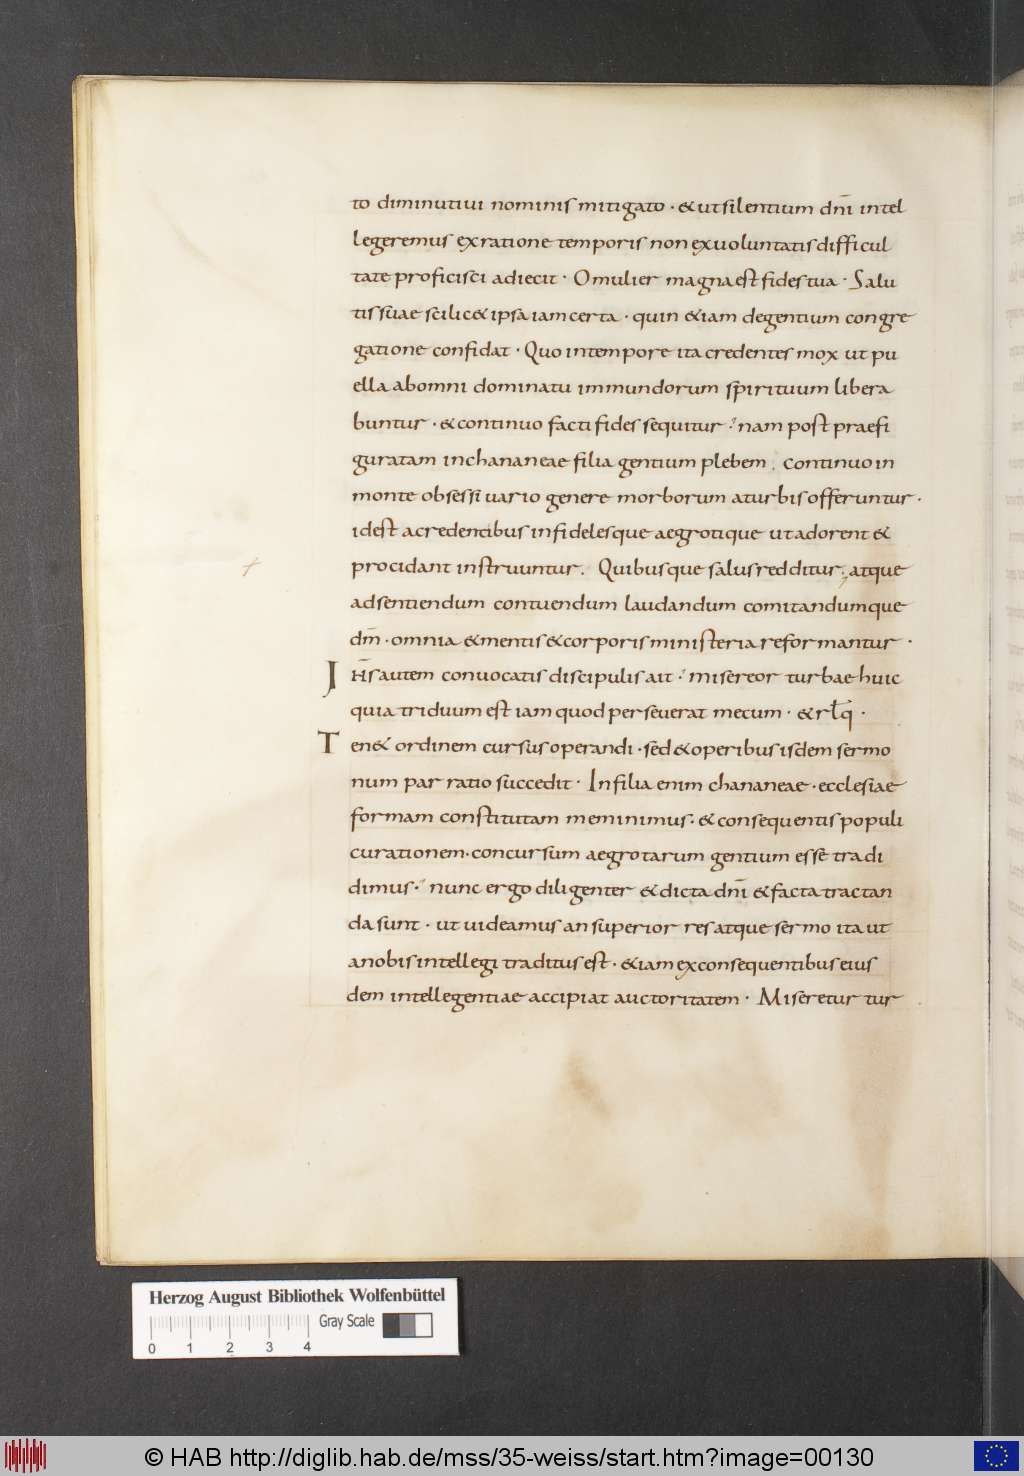 to diminutiui nominis mitigato · & ut silentium dn̄i intel
legeremus ex ratione temporis non ex uoluntatis difficul
tate proficisci adiecit · O mulier magna est fides tua · Salu
tis suae scilic& ipsa iam certa · quin &iam de gentium congre
gatione confidat · Quo in tempore ita credentes mox ut pu
ella ab omni dominatu immundorum spirituum libera
buntur · & continuo facti fides sequitur · nam post praefi
guratam in chananeae filia gentium plebem . continuo in
monte obsessi uario genere morborum a turbis offeruntur ·
id est a credentibus infideles que aegrotique ut adorent &
procidant instruuntur . Quibus que salus redditur . atque
ad sentiendum contuendum laudandum comitandumque
dm̄ · omnia & mentis & corporis ministeria reformantur ·
Ih̄s autem conuocatis discipulis ait · misereor turbae huic
quia triduum est iam quod perseuerat mecum · & rl̄q ·
Ten& ordinem cursus operandi · sed & operibus isdem sermo
num par ratio succedit · In filia enim chananeae · ecclesiae
formam constitutam meminimus · & consequentis populi
curationem · concursum aegrotarum gentium esse tradi
dimus · nunc ergo diligenter & dicta dn̄i & facta tractan
da sunt · ut uideamus an superior res atque sermo ita ut
a nobis intellegi traditus est · &iam ex consequentibus eius
dem intellegentiae accipiat auctoritatem · Miseretur tur
Herzog August Bibliothek Wolfenbüttel
Gray Scale
0 1 2 3 4
© HAB http://diglib.hab.de/mss/35-weiss/start.htm?image=00130